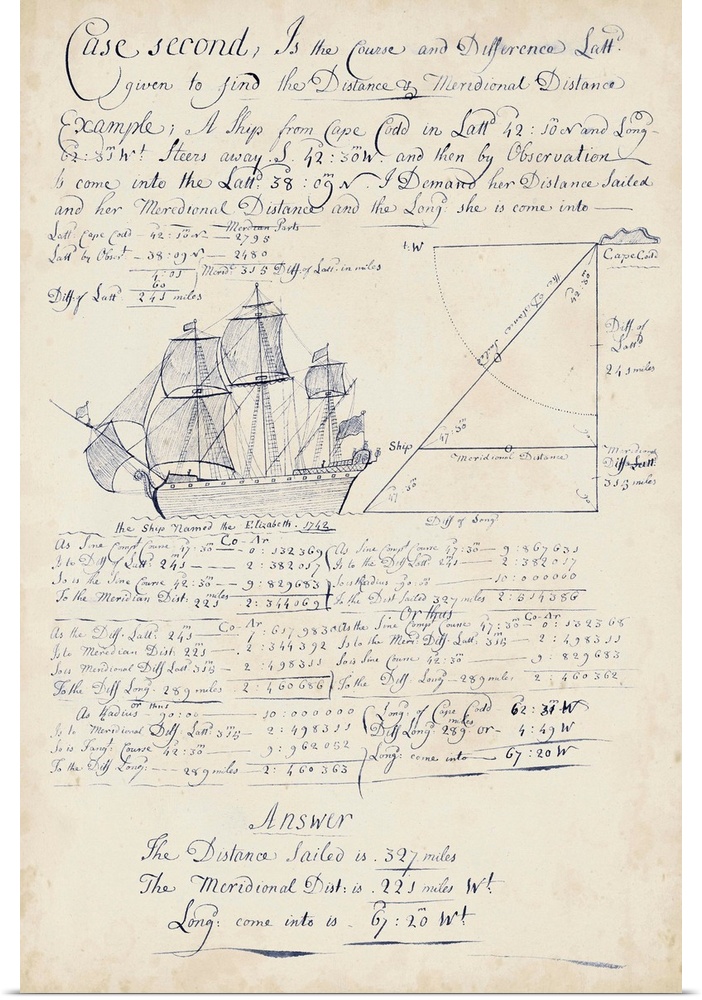 Case second, Is the Course and Difference Lattd.
given to find the Distance & Meridional Distance
Example; A Ship from Cape Codd in Lattd. 42:10 N and Long-
62:31 Wt. Steers away. S. 42:30 W. and then by Observation
Is come into the Lattd. 38:09 N. I Demand her Distance Sailed
and her Meredional Distance and the Long: she is come into —
Meredian Parts
Latt: Cape Codd — 42:10 N — 2795
Lattd. by Obsert. — 38:09 N — 2480
4:01 / Merid: 315 Diff. of Latt: in miles
60
Diff. of Lattd. 241 miles
t:W
Cape Codd
42:30
the Distance Sailed
Diff. of
Lattd
241 miles
47:30
Ship
Meridional Distance
Meridional
Diff Latt:
315 miles
47:30
Diff of Long:
the Ship Named the Elizabeth. 1742
Co-Ar
As Sine Compt Course 47:30 — 0:132369
Is to Diff of Latt: 241 — 2:382017
So is the Sine Course 42:30 — 9:829683
To the Meridian Dist: 221 miles — 2:344069
As Sine Compt Course 47:30 — 9:867631
Is to the Diff Latt: 241 — 2:382017
So is Radius 90:00 — 10:000000
To the Dist Sailed 327 miles 2:514386
Co-Ar
As the Diff. Latt: 241 — 7:617983
Is to Meredian Dist: 221 — 2:344392
So is Meredional Diff Latt: 315 — 2:498311
To the Diff Long: — 289 miles — 2:460686
Or thus
Co-Ar
As the Sine Compt Course 47:30 — 0:132368
Is to the Meri: Diff. Latt: 315 — 2:498311
So is Sine Course 42:30 — 9:829683
To the Diff. Long — 289 miles — 2:460362
or thus
As Radius — 90:00 — 10:000000
Is to Meridional Diff. Latt: 315 — 2:498311
So is Tangt: Course 42:30 — 9:962052
To the Diff Long: — 289 miles — 2:460363
Long: of Cape Codd 62:31 W
miles
Diff Long: 289 or — 4:49 W
Long: come into — 67:20 W
Answer
The Distance Sailed is. 327 miles
The Meridional Dist: is. 221 miles Wt.
Long: come into is — 67:20 Wt.